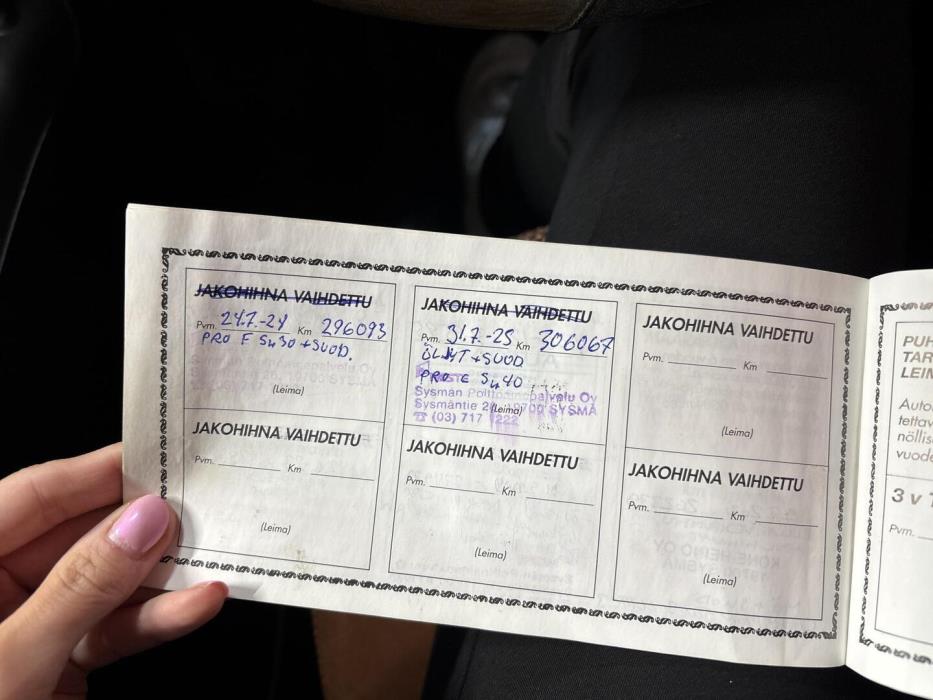 JAKOHIHNA VAIHDETTU
Pvm. 24.7.-24 Km 296093
PRO E 5w30 + SUOD.
(Leima)
JAKOHIHNA VAIHDETTU
Pvm. 31.7.-25 Km 306067
ÖLJYT + SUOD
PRO E 5w40
Sysmän Polttoainepalvelu Oy
Sysmäntie 2 (Leima) 19700 SYSMÄ
☎ (03) 717 1222
JAKOHIHNA VAIHDETTU
Pvm. Km
(Leima)
JAKOHIHNA VAIHDETTU
Pvm. Km
(Leima)
JAKOHIHNA VAIHDETTU
Pvm. Km
(Leima)
JAKOHIHNA VAIHDETTU
Pvm. Km
(Leima)
PUH
TAR
LEIM
Auto
tettav
nöllis
vuode
3 v T
Pvm.